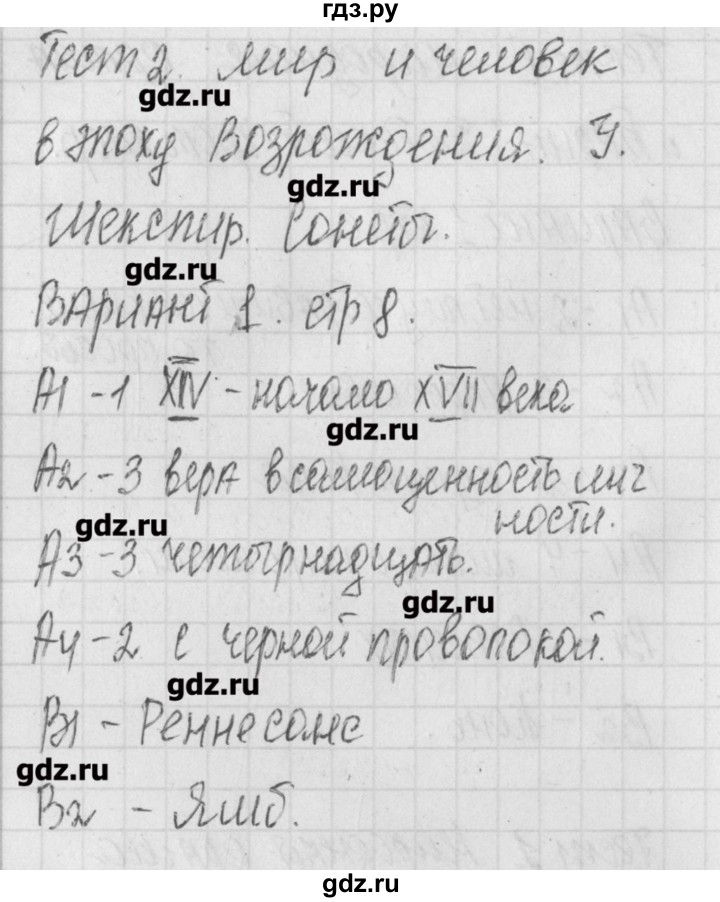 гдз.ру
Тест 2. Мир и человек
gdz.ru
в эпоху Возрождения. У.
gdz.ru
Шекспир. Сонеты.
gdz.ru
Вариант 1. стр 8.
А1 - 1 XIV - начало XVII века
gdz.ru
А2 - 3 вера в самоценность лич
ности.
gdz.ru
А3 - 3 четырнадцать.
gdz.ru
А4 - 2 с черной проволокой.
gdz.ru
В1 - Реннесанс
gdz.ru
В2 - Ямб.
gdz.ru